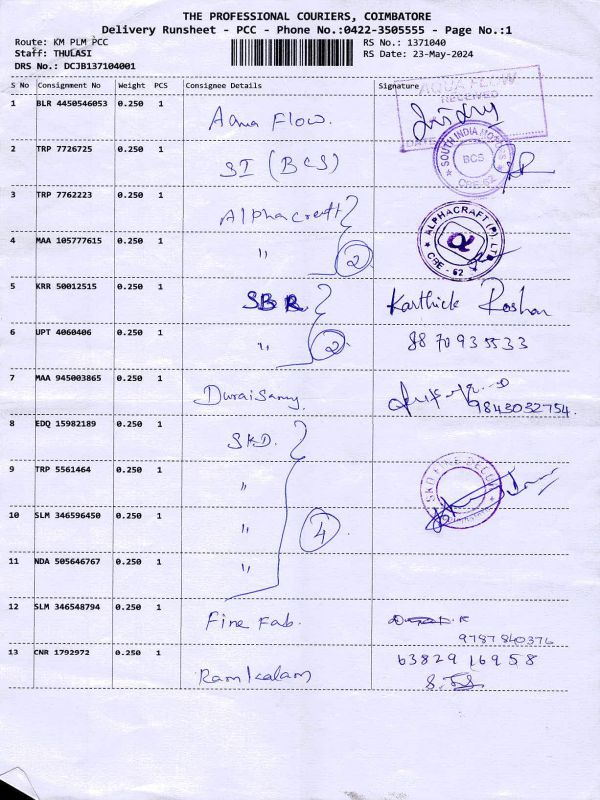 THE PROFESSIONAL COURIERS, COIMBATORE
Delivery Runsheet - PCC - Phone No.:0422-3505555 - Page No.:1
Route: KM PLM PCC
Staff: THULASI
DRS No.: DCJB137104001
RS No.: 1371040
RS Date: 23-May-2024
S No Consignment No Weight PCS Consignee Details Signature
1 BLR 4450546053 0.250 1 Aqua Flow.
AQUA FLOW
RECEIVED
DATE
2 TRP 7726725 0.250 1 SI (BCS)
SOUTH INDIA
BCS
CBE-62
3 TRP 7762223 0.250 1 Alphacraft
4 MAA 105777615 0.250 1 " 2
ALPHACRAFT (P) LTD
α
CBE - 62
5 KRR 50012515 0.250 1 SBR Karthick Roshan
6 UPT 4060406 0.250 1 " 2 8870935533
7 MAA 945003865 0.250 1 Duraisamy 9843032754.
8 EDQ 15982189 0.250 1 SKD.
9 TRP 5561464 0.250 1 "
SKD FINE
10 SLM 346596450 0.250 1 " 4
11 NDA 505646767 0.250 1 "
12 SLM 346548794 0.250 1 Fine Fab.
9787840376
13 CNR 1792972 0.250 1 Ramkalam 6382916958